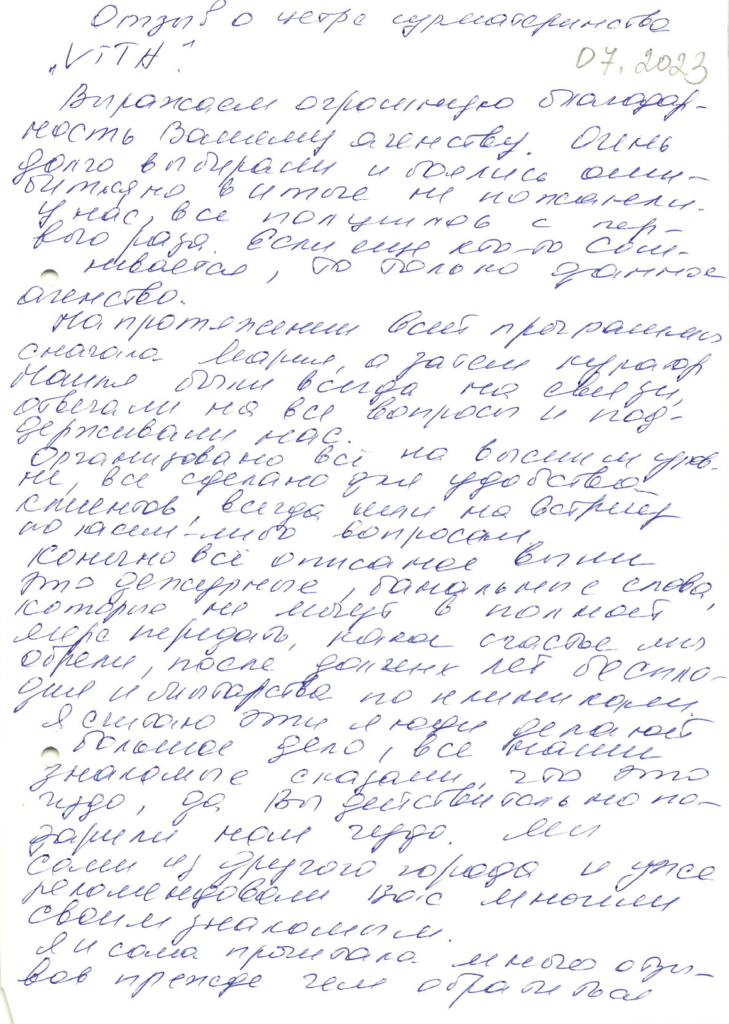 Отзыв о цетре сурматеринства
„VITA".
07.2023
Выражаем огромную благодар-
ность Вашему агенству. Очень
долго выбирали и боялись оши-
биться, но в итоге не пожалели.
У нас все получилось с пер-
вого раза. Если еще кто-то сом-
невается, то только данное
агенство.
На протяжении всей программы
сначала Мария, а затем куратор
были всегда на связи,
отвечали на все вопросы и под-
держивали нас.
Организовано всё на высшем уров-
не, все сделано для удобства
клиентов, всегда шли на встречу
по каким-либо вопросам.
Конечно всё описаное выше
это дежурные, банальные слова,
которые не могут в полной
мере передать, какое счастье мы
обрели, после долгих лет беспло-
дия и мытарства по клиникам.
Я считаю эти люди делают
большое дело, все наши
знакомые сказали, что это
чудо, да Вы действительно по-
дарили нам чудо. Мы
сами из другого города и уже
рекомендовали Вас многим
своим знакомым.
Я и сама прочитала много отзы-
вов прежде чем обратиться